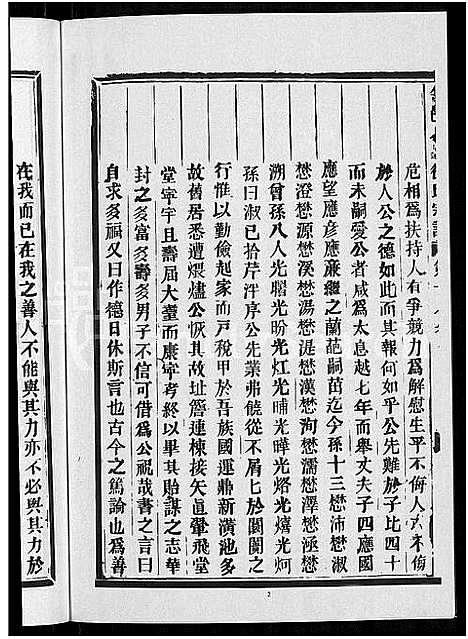 危相爲扶持人有爭競力爲解慰生平不侮人亦不侮
於人公之德如此而其報何如乎公先艱於子比四十
而未嗣愛公者咸爲太息越七年而舉丈夫子四應國
應望應彦應廉繼之蘭葩嗣茁迄今孫十三懋沛懋常
懋澄懋源懋溪懋湯懋湜懋漢懋洵懋濡懋澤懋極懋
溯曾孫八人光曙光昐光灯光晡光曄光烙光熺光炯
孫曰淑已拾芹泮序公先業弗饒從不屑屑於閡閡之
行惟以勤儉起家而戸稅甲於吾族國運鼎新潢池多
故舊居悉遭煨燼公恢其故址簷連棟接矢直翬飛堂
堂寧宇且壽届大耋而康寜考終以畢其貽謀之志華
封之多富多壽多男子不信可借爲公祝哉書之言曰
自求多福又曰作德日休斯言也古今之篤論也爲善
在我而已在我之善人不能與其力亦不必與其力於
2